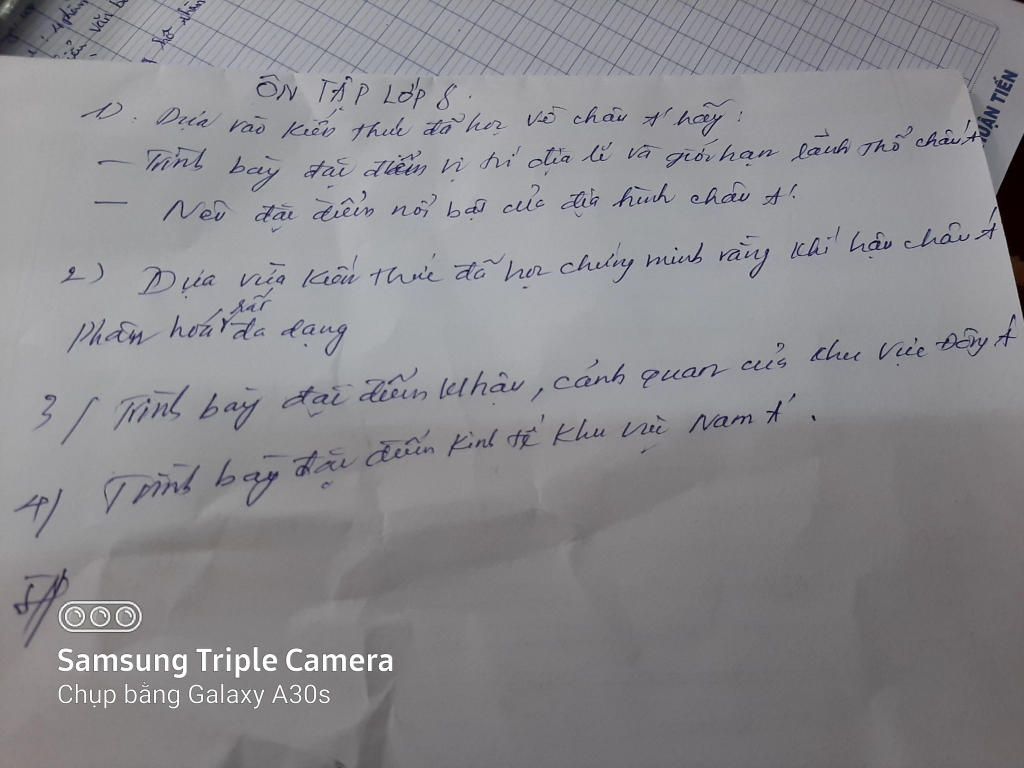 ÔN TẬP LỚP 8.
1) : Dựa vào kiến thức đã học về châu Á hãy:
— Trình bày đặc điểm vị trí địa lí và giới hạn lãnh thổ châu Á
— Nêu đặc điểm nổi bật của địa hình châu Á.
2) Dựa vừa kiến thức đã học chứng minh rằng khí hậu châu Á
rất
phân hoá đa dạng
3/ Trình bày đặc điểm khậu, cảnh quan của khu vực Đông Á
4/ Trình bày đặc điểm kinh tế khu vực Nam Á.
Samsung Triple Camera
Chụp bằng Galaxy A30s
UẬN TIẾN
văn